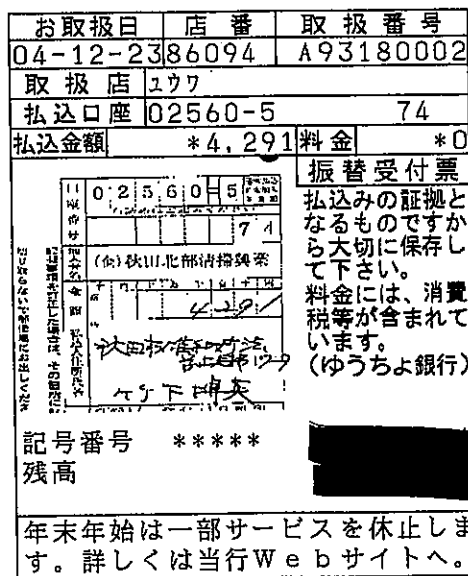 お取扱日 店番 取扱番号
04-12-23 86094 A93180002
取扱店 ユウワ
払込口座 02560-5 74
払込金額 *4,291 料金 *0
振替受付票
払込みの証拠と
なるものですか
ら大切に保存し
て下さい。
料金には、消費
税等が含まれて
います。
(ゆうちょ銀行)
02560-5
74
秋田北部清掃興業
4291
記号番号 *****
残高
年末年始は一部サービスを休止しま
す。詳しくは当行Webサイトへ。